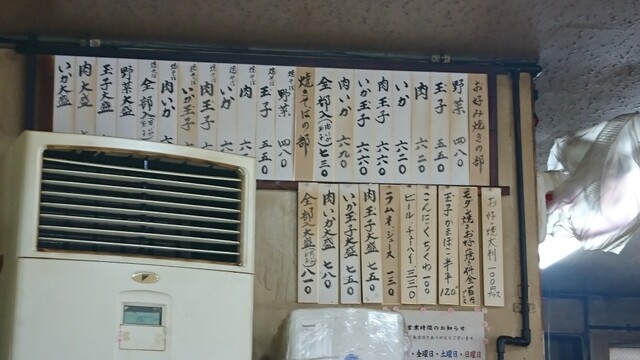 お好み焼きの部
野菜 四八〇
玉子 五五〇
肉 六二〇
いか 六二〇
肉玉子 六六〇
いか玉子 六六〇
肉いか 六九〇
全部入 七三〇
焼きそばの部
焼そば 野菜 四八〇
焼そば 玉子 五五〇
焼そば 肉 六
焼そば いか 六
焼そば 肉玉子
焼そば いか玉子
焼そば 肉いか
焼そば 全部入
野菜大盛
玉子大盛
肉大盛
いか大盛
お好み焼大判 一〇〇円
モダン焼き お好み焼き料金
玉子かまぼこ半平 120
こんにくちくわ 一〇〇
ビールチューハイ 三三〇
ラムネ・ジュース 一三〇
肉玉子大盛 七五〇
いか玉子大盛 七五〇
肉いか大盛 七八〇
全部入大盛 八一〇
営業時間のお知らせ
・金曜日・土曜日・日曜日